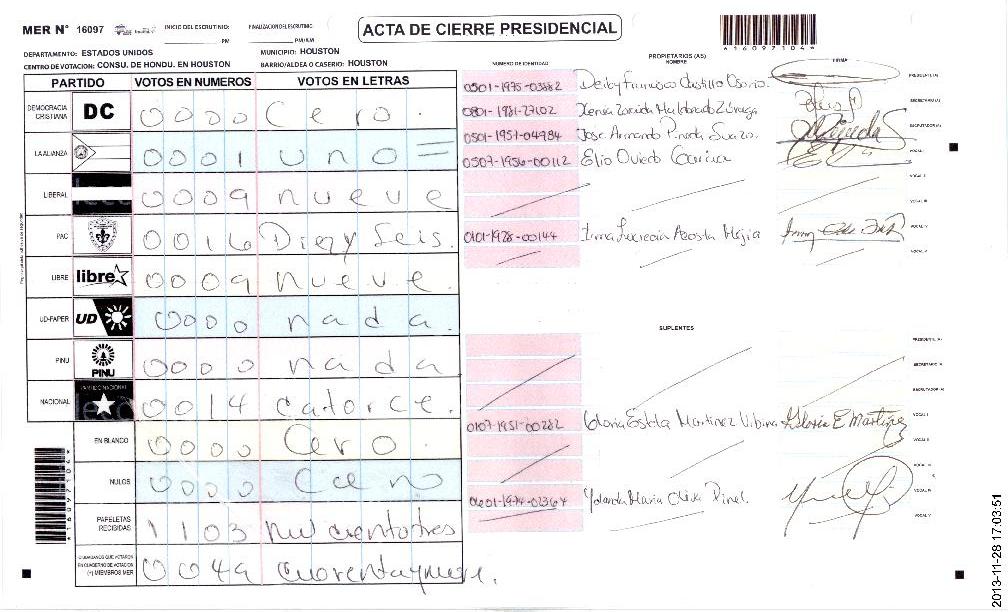 MER N° 16097 INICIO DEL ESCRUTINIO: PM FINALIZACION DEL ESCRUTINIO: PM/AM ACTA DE CIERRE PRESIDENCIAL
*16097104*
DEPARTAMENTO: ESTADOS UNIDOS MUNICIPIO: HOUSTON
CENTRO DE VOTACION: CONSU. DE HONDU. EN HOUSTON BARRIO/ALDEA O CASERIO: HOUSTON
NÚMERO DE IDENTIDAD PROPIETARIOS (AS) NOMBRE FIRMA
PARTIDO VOTOS EN NUMEROS VOTOS EN LETRAS
DEMOCRACIA CRISTIANA DC 0000 Cero.
LA ALIANZA 0001 uno =
LIBERAL 0009 nueve
PAC 0016 Diez y Seis.
LIBRE libre 0009 nueve.
UD-FAPER UD 0000 nada.
PINU PINU 0000 nada
NACIONAL PARTIDO NACIONAL 0014 catorce.
EN BLANCO 0000 Cero.
NULOS 0000 Cero
PAPELETAS RECIBIDAS 1103 Mil cientotres
CIUDADANOS QUE VOTARON EN CUADERNO DE VOTACION (+) MIEMBROS MER 0049 cuarentaynueve.
0501-1975-03882 Deiby Francisco Castillo Osorio. PRESIDENTE (A)
0801-1981-27102 Xenia Zoraida Maldonado Zúniga SECRETARIO (A)
0501-1951-04984 Jose Armando Pineda Suazo. ESCRUTADOR (A)
0507-1956-00112 Elio Oviedo VOCAL I
VOCAL II
VOCAL III
0101-1978-00144 Irma Lucrecia Acosta Mejia VOCAL IV
VOCAL V
SUPLENTES
PRESIDENTE (A)
SECRETARIO (A)
ESCRUTADOR (A)
0107-1951-00282 Gloria Estela Martinez Urbina Gloria E Martinez VOCAL I
VOCAL II
VOCAL III
0601-1974-01364 Yolanda Maria Oliva Pinel VOCAL IV
VOCAL V
*16097104*
2013-11-28 17:03:51